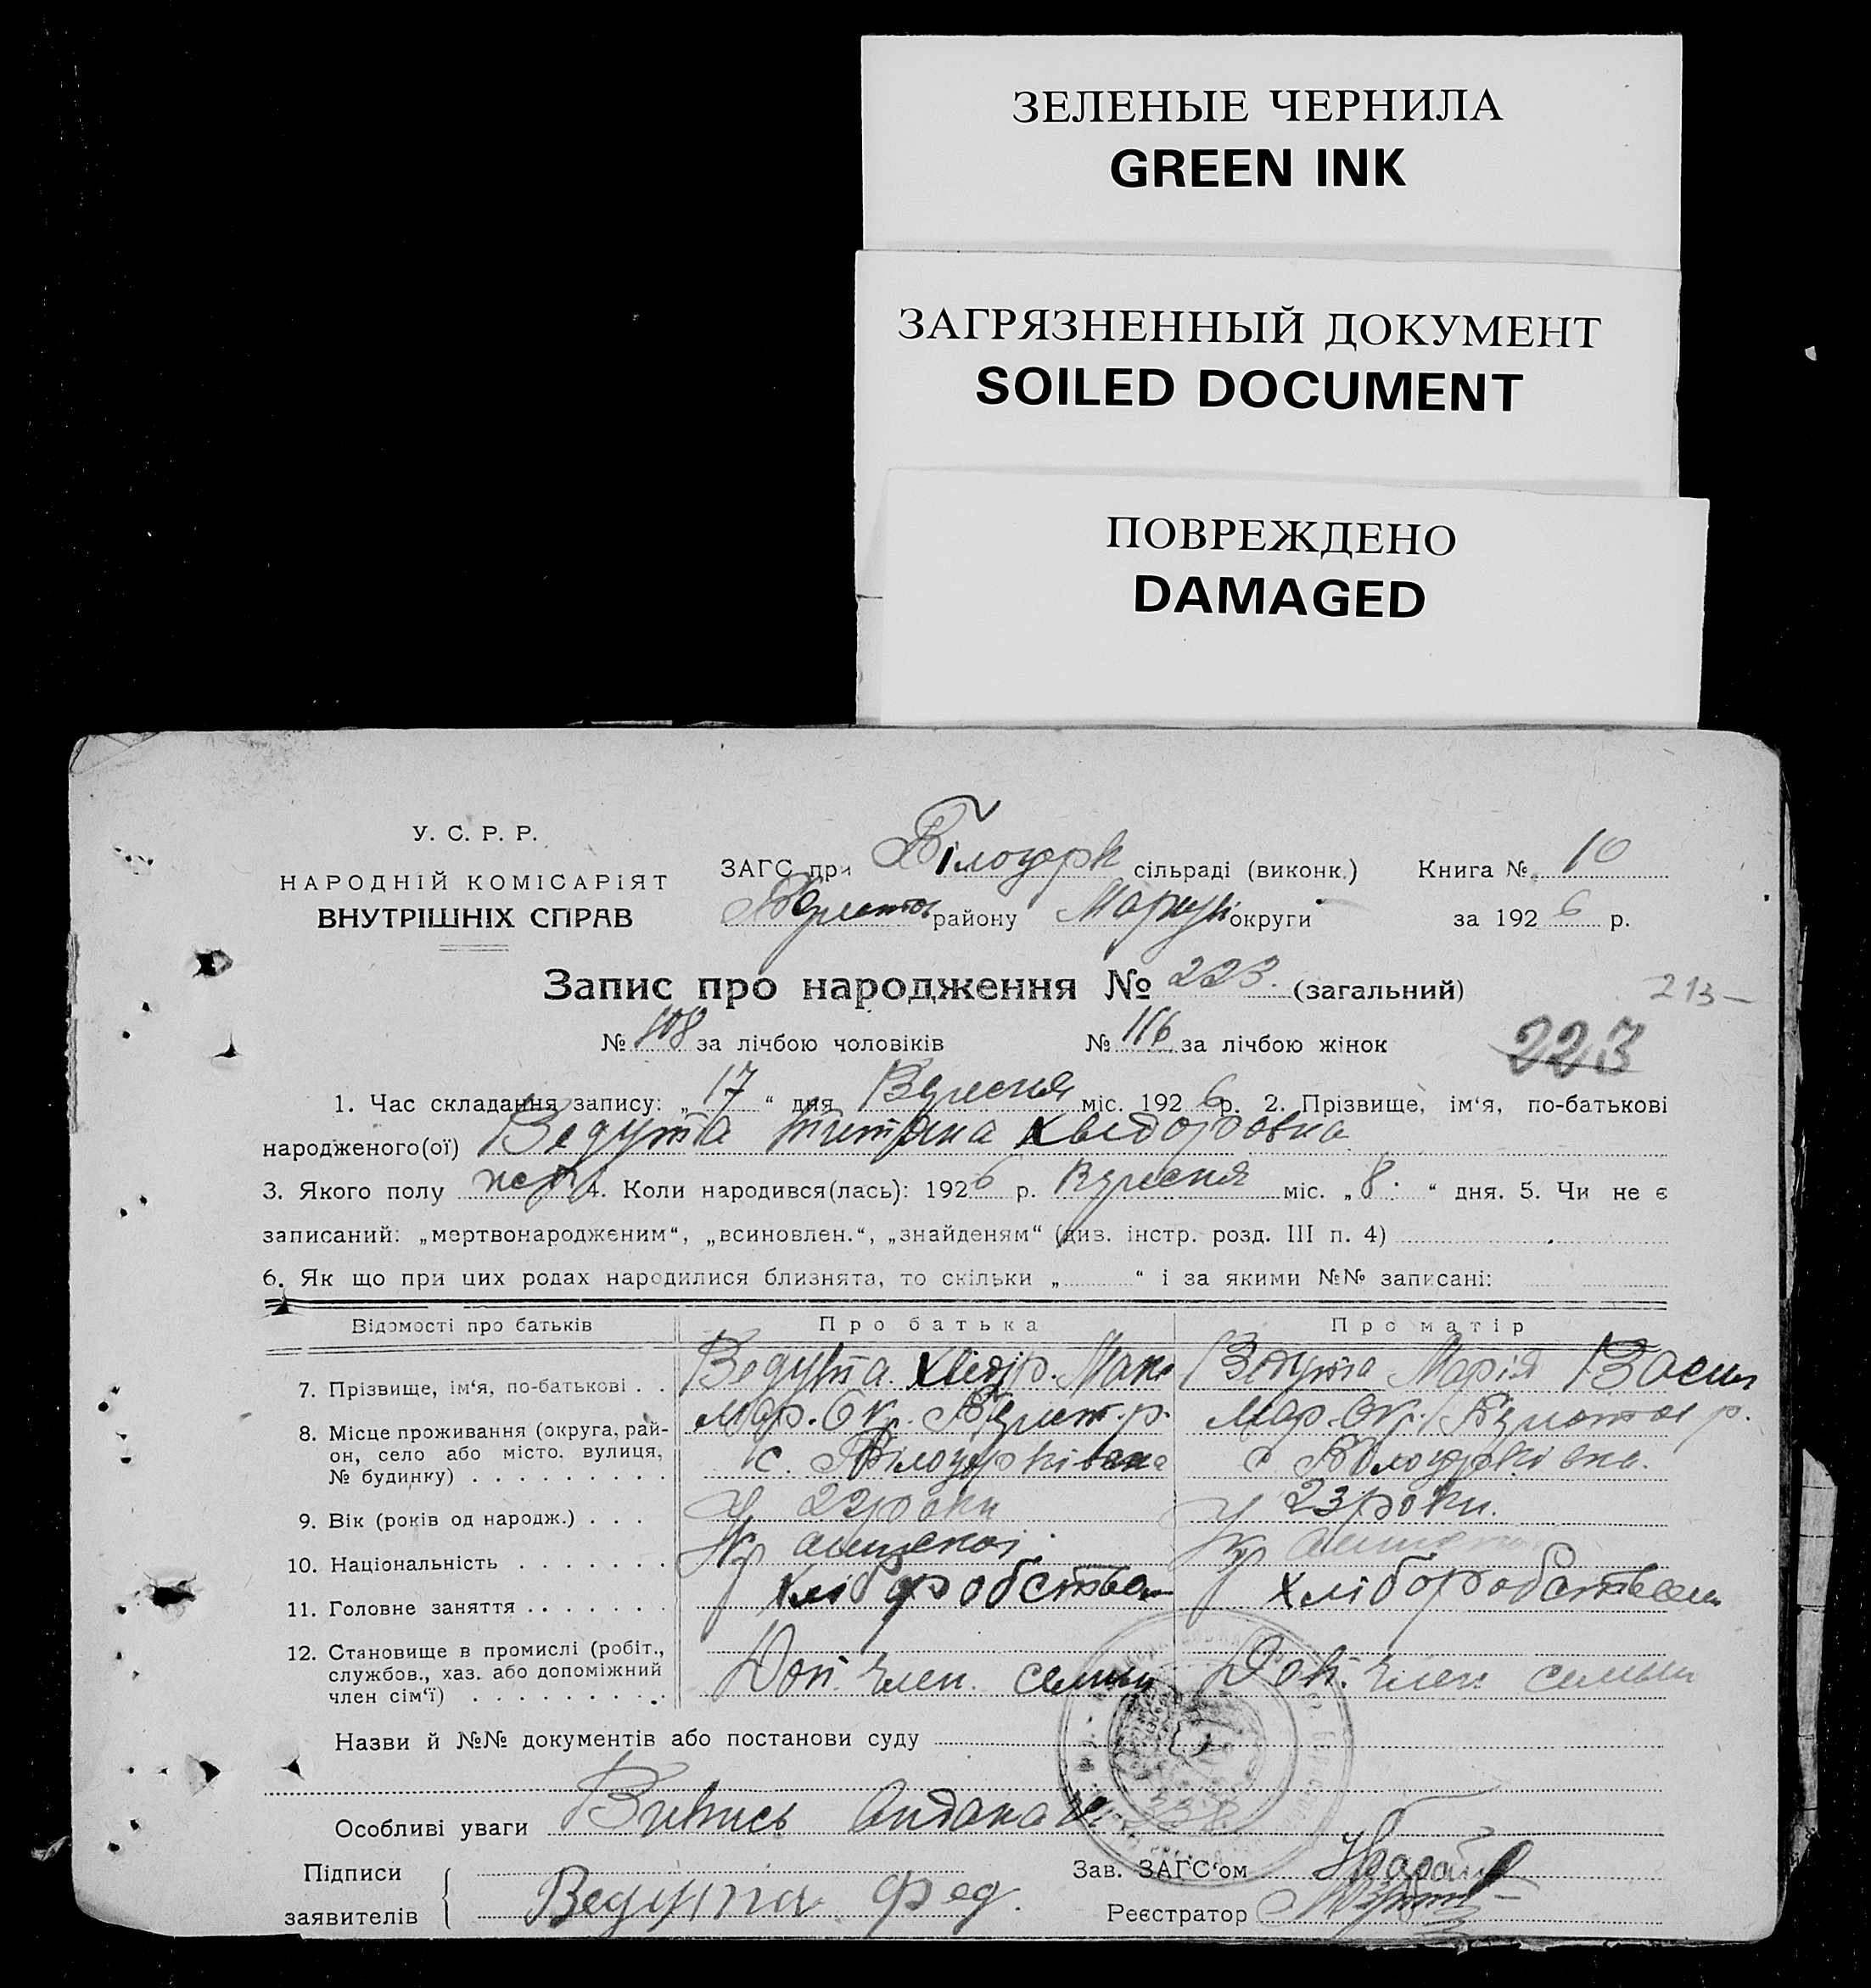 ЗЕЛЕНЫЕ ЧЕРНИЛА
GREEN INK
ЗАГРЯЗНЕННЫЙ ДОКУМЕНТ
SOILED DOCUMENT
ПОВРЕЖДЕНО
DAMAGED
У. С. Р. Р.
НАРОДНІЙ КОМІСАРІЯТ
ВНУТРІШНІХ СПРАВ
ЗАГС при Білоцерк сільраді (виконк.) Книга № 10
району Маріуп округи за 1926 р.
Запис про народження № 223. (загальний)
213 —
№ 108 за лічбою чоловіків № 116 за лічбою жінок
223
1. Час складання запису: „17“ дня Вересня міс. 1926 р. 2. Прізвище, ім'я, по-батькові
народженого(ої) Ведута Хведоровна
3. Якого полу 4. Коли народився(лась): 1926 р. Вересня міс. „8.“ дня. 5. Чи не є
записаний: „мертвонародженим“, „всиновлен.“, „знайденям“ (див. інстр. розд. III п. 4)
6. Як що при цих родах народилися близнята, то скільки „ “ і за якими №№ записані:
Відомості про батьків Про батька Про матір
7. Прізвище, ім'я, по-батькові . . Ведута Хведір. Мак Ведута Марія Васил
8. Місце проживання (округа, рай- Мар. Окр. р. Мар. Окр. р.
он, село або місто, вулиця, с. Білоцерківка с Білоцерківка.
№ будинку) . . . . . . . . .
9. Вік (років од народж.) . . . 23 роки.
10. Національність . . . . . . .
11. Головне заняття . . . . . . . хліборобством хліборобством
12. Становище в промислі (робіт., Доп. член. семьи Доп. член семьи
службов., хаз. або допоміжний
член сім'ї) . . . . . . . . .
Назви й №№ документів або постанови суду
Особливі уваги Випись
Підписи
заявителів Ведута Фед.
Зав. ЗАГС'ом
Реєстратор